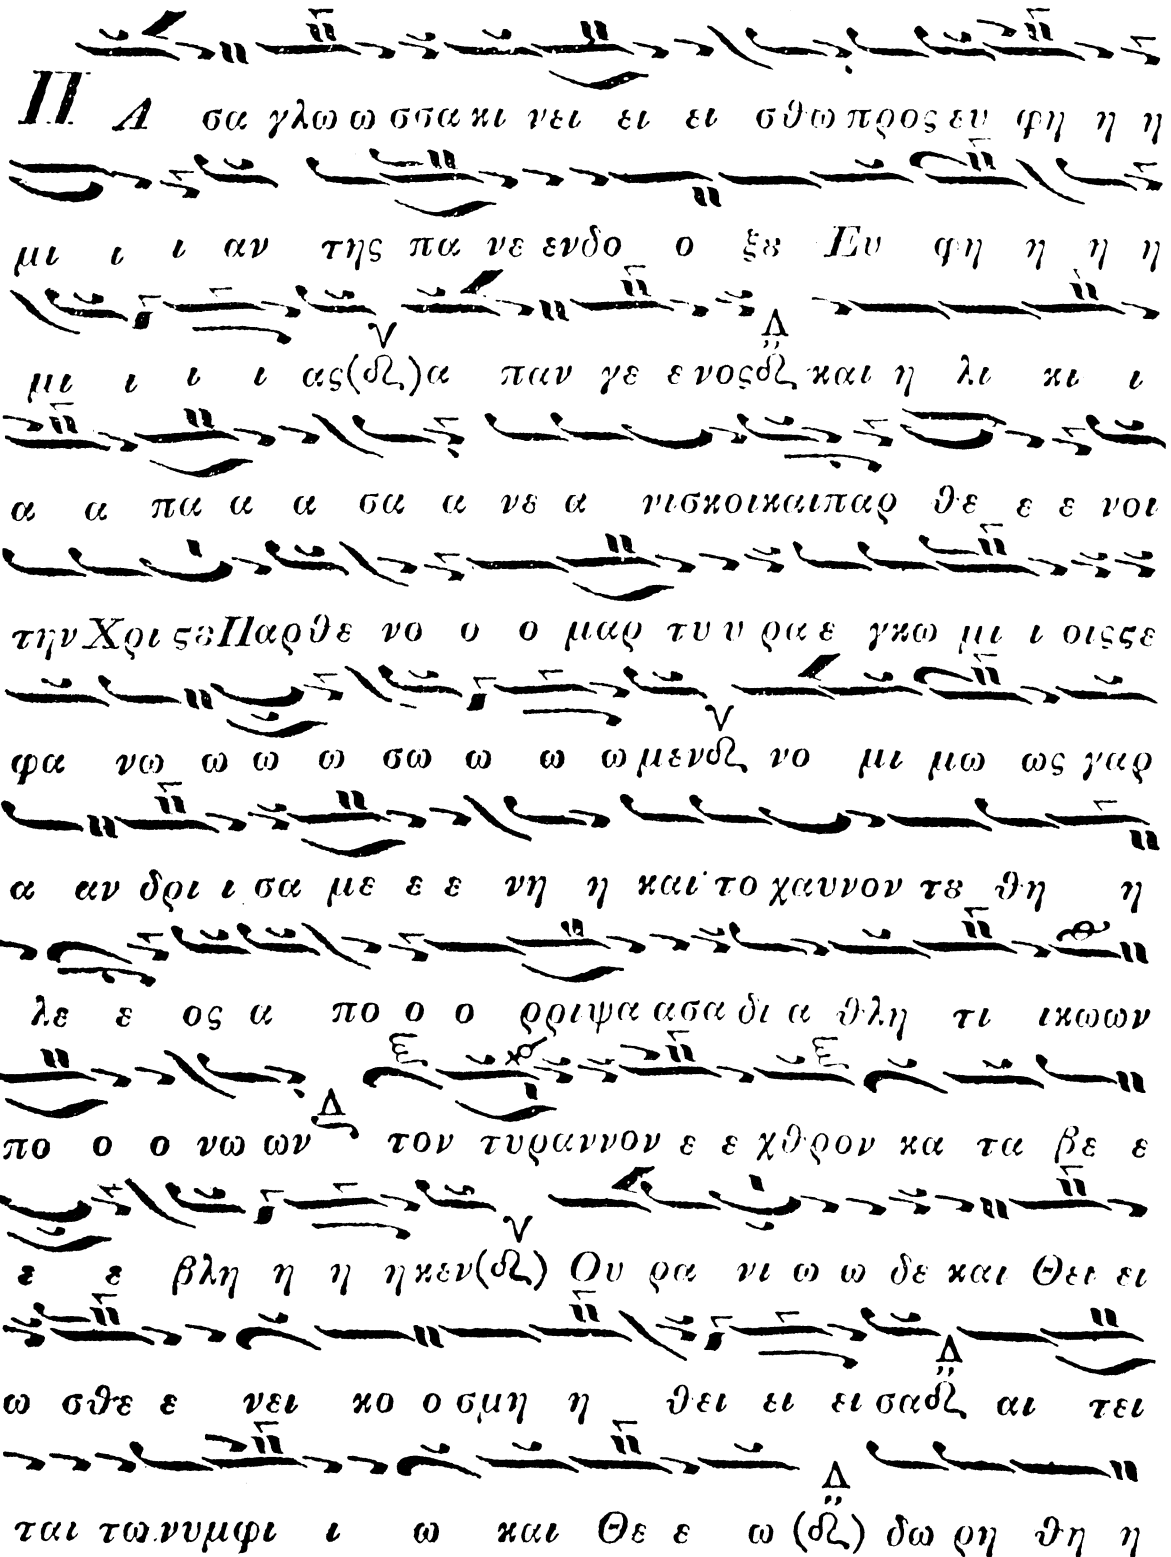 Π Α σα γλω ω σσα κι νει ει ει σθω προς ευ φη η η
μι ι ι αν της πα νε ενδο ο ξȣ Ευ φη η η η
μι ι ι ι ας (δι) α παν γε ε νος δι και η λι κι ι
α α πα α α σα α νε α νισκοι και παρ θε ε ε νοι
την Χρι ϛȣ Παρθε νο ο ο μαρ τυ υ ρα ε γκω μι ι οις ϛε
φα νω ω ω ω σω ω ω ω μεν δι νο μι μω ως γαρ
α αν δρι ι σα με ε ε νη η και το χαυνον τȣ θη η
λε ε ος α πο ο ο ρριψα α σα δι α θλη τι ικω ων
πο ο ο νω ων Δ τον τυραννον ε ε χθρον κα τα βε ε
ε ε βλη η η η κεν (δι) Ου ρα νι ω ω δε και Θει ει
ω σθε ε νει κο ο σμη η θει ει ει σα δι αι τει
ται τω νυμφι ι ω και Θε ε ω (δι) δω ρη θη η